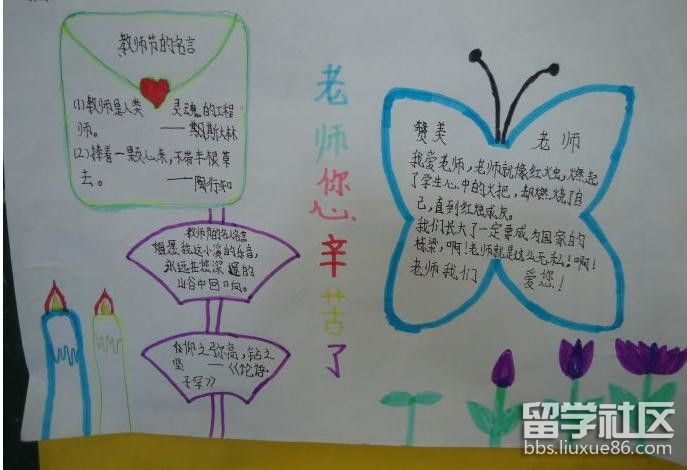 教师节的名言
(1)教师是人类 灵魂的工程
师。 ——斯大林
(2)捧着一颗心来,不带半根草
去。 ——陶行知
教师节的名人名言
相愿我这小溪的乐音,
永远在您深邃的
山谷中回响。
《仰之弥高,钻之
坚 ——《论语·
子罕》》
老师您辛苦了
赞美 老师
我爱老师,老师就像红火虫,燃起
了学生心中的火把,却燃烧了自
己,直到红烛成灰。
我们长大了一定要成为国家的
栋梁,啊!老师就是这么无私!啊!
老师我们 爱您!
留学社区
bbs.liuxue86.com